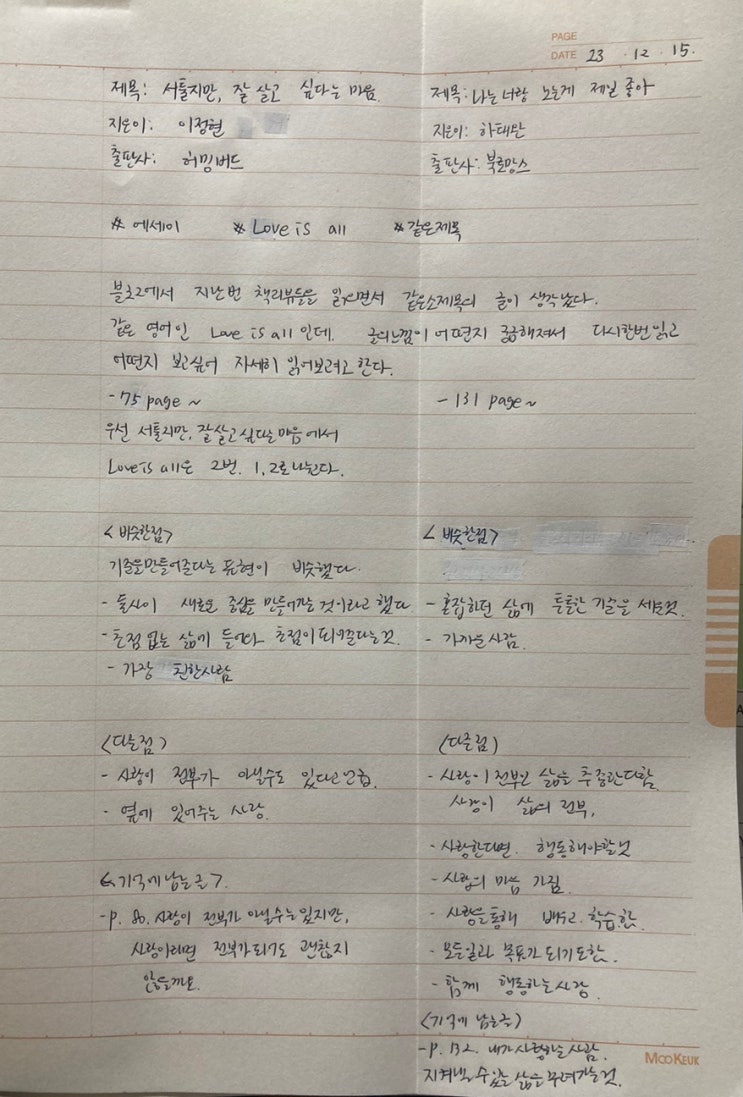 PAGE
DATE 23 · 12 · 15.
제목: 서툴지만, 잘 살고 싶다는 마음.
지은이: 이정현
출판사: 허밍버드
제목: 나는 너랑 노는게 제일 좋아
지은이: 하태완
출판사: 북로망스
※ 에세이 ※ Love is all ※ 같은제목
블챌에서 지난번 책리뷰들을 읽으면서 같은소제목의 글이 생각났다.
같은 영어인 Love is all 인데. 글의느낌이 어떤지 궁금해져서 다시한번읽고
어떤지 보고싶어 자세히 읽어보려고 한다.
- 75 page ~
- 131 page ~
우선 서툴지만, 잘살고싶다는마음에서
Love is all은 2번. 1, 2로 나눈다.
<비슷한점>
기준을만들어준다는 표현이 비슷했다.
- 둘사이 새로운 중심을 만들어가는것이라고 했다
- 초점 없는 삶에 들어와 초점이 되어준다는것.
- 가장 친한사람
<비슷한점>
- 혼잡하던 삶에 투툼한 기준을 세운것.
- 가까운사람.
<다른점>
- 사랑이 전부가 아닐수도 있다고언급.
- 옆에 있어주는 사랑.
<기억에 남는글>.
- p. 80. 사랑이 전부가 아닐수는있지만,
사랑이라면 전부가되기도 괜찮지
않을까요.
(다른점)
- 사랑이전부인 삶을 추종한다함.
사랑이 삶의 전부,
- 사랑한다면. 행동해야할것
- 사랑의 마음 가짐.
- 사랑을통해 배우고. 학습함.
- 모든일과 목표가 되기도함.
- 함께 행동하는사랑.
<기억에 남는글>
- p. 132. 내가사랑하는 사람.
지켜낼 수 있는 삶을꾸려가는것.
MOOKEUK